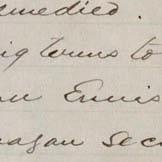 medied.
ig towns to
Ennis
nagan sec